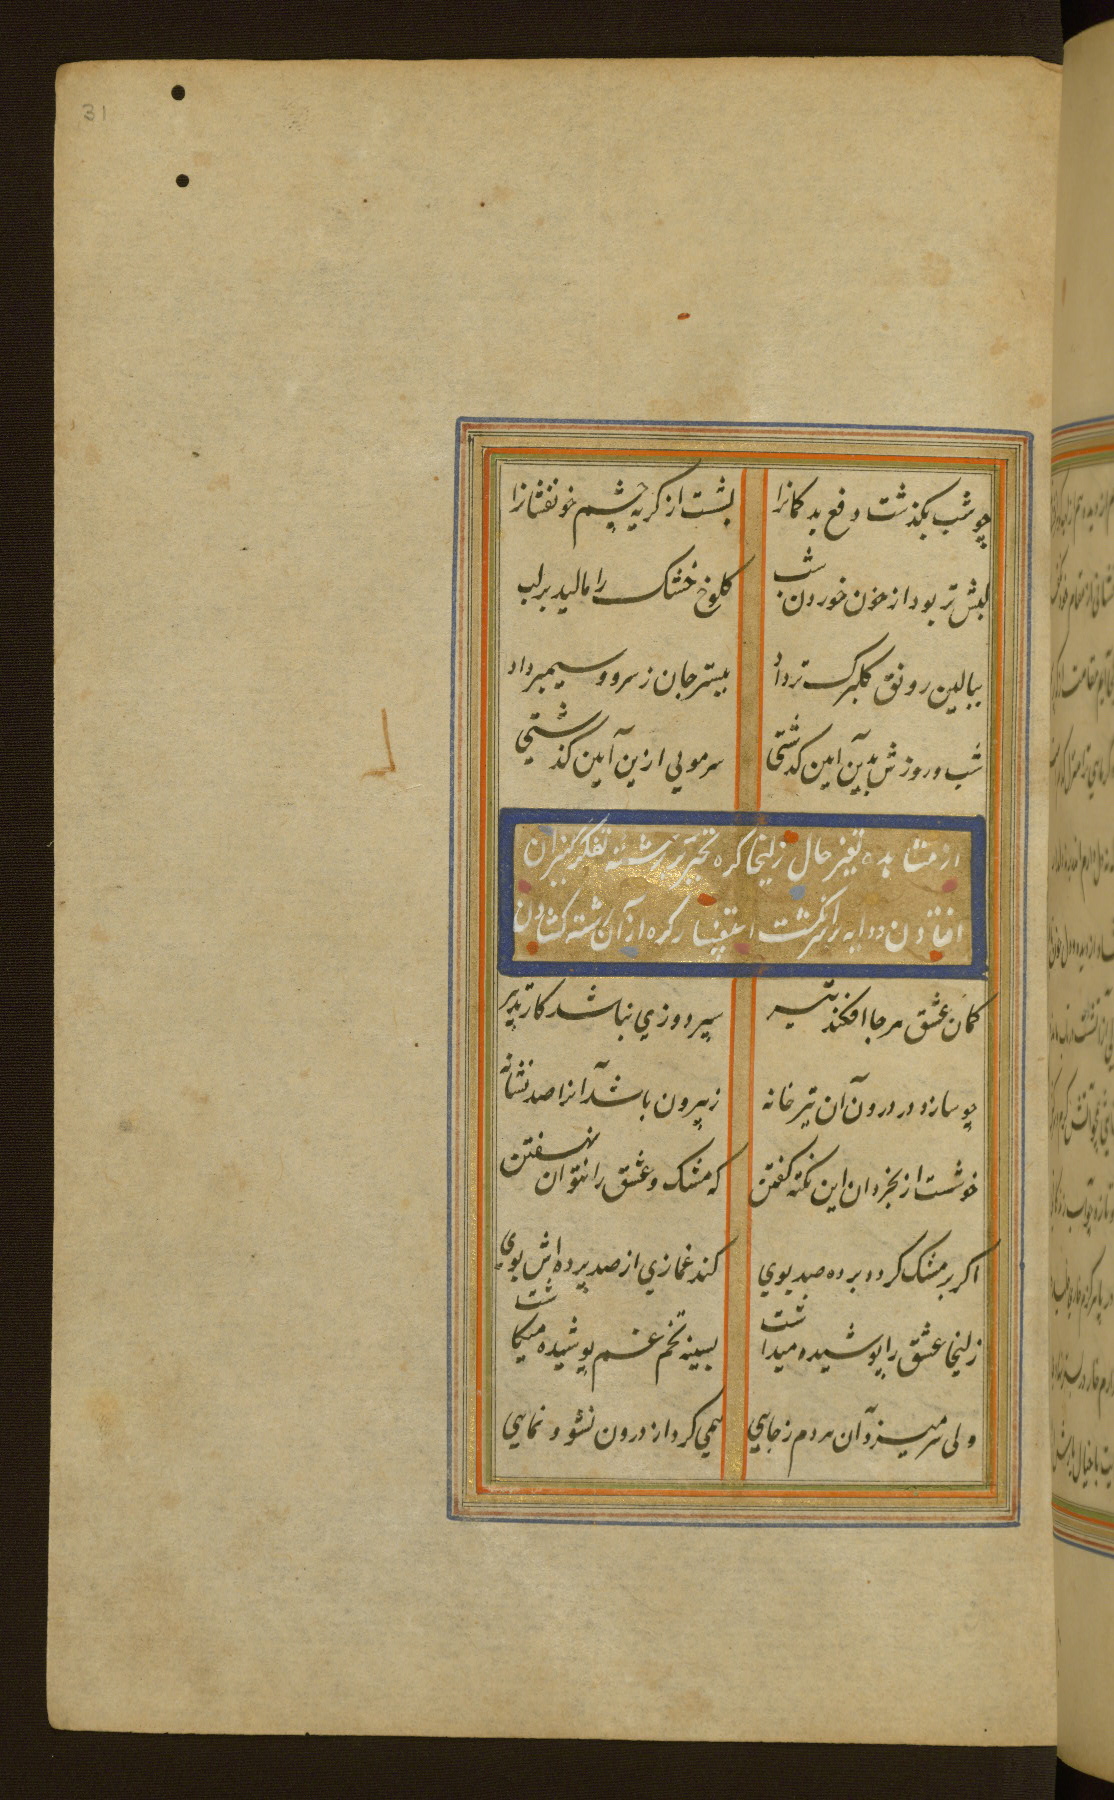 31
چو شب بگذشت دفع بد گمانرا بشست از گریه چشم خونفشانرا
لبش تر بود از خون خوردن شب کلوخ خشک را مالید بر لب
ببالین رونق گلبرگ تر داد ببستر جان ز سرو سیمبر داد
شب و روزش بدین آیین گذشتی سر مویی ازین آیین گذشتی
از مشاهده تغیر حال زلیخا گره تحیر بر رشته تفکر کنیزان
افتادن و دایه را انگشت استفسار گره از آن رشته گشادن
کمان عشق هر جا افکند تیر سپر دوزی نباشد کار تدبیر
چو سازد در درون آن تیر خانه ز بیرون باشد آنرا صد نشانه
خوشست از بخردان این نکته گفتن که مشک و عشق را نتوان نهفتن
اگر بر مشک گردد پرده صد توی کند غمازی از صد پرده اش بوی
زلیخا عشق را پوشیده میداشت بسینه تخم غم پوشیده میکاشت
ولی سر میزد آن هر دم ز جایی همی کرد از درون نشو و نمایی